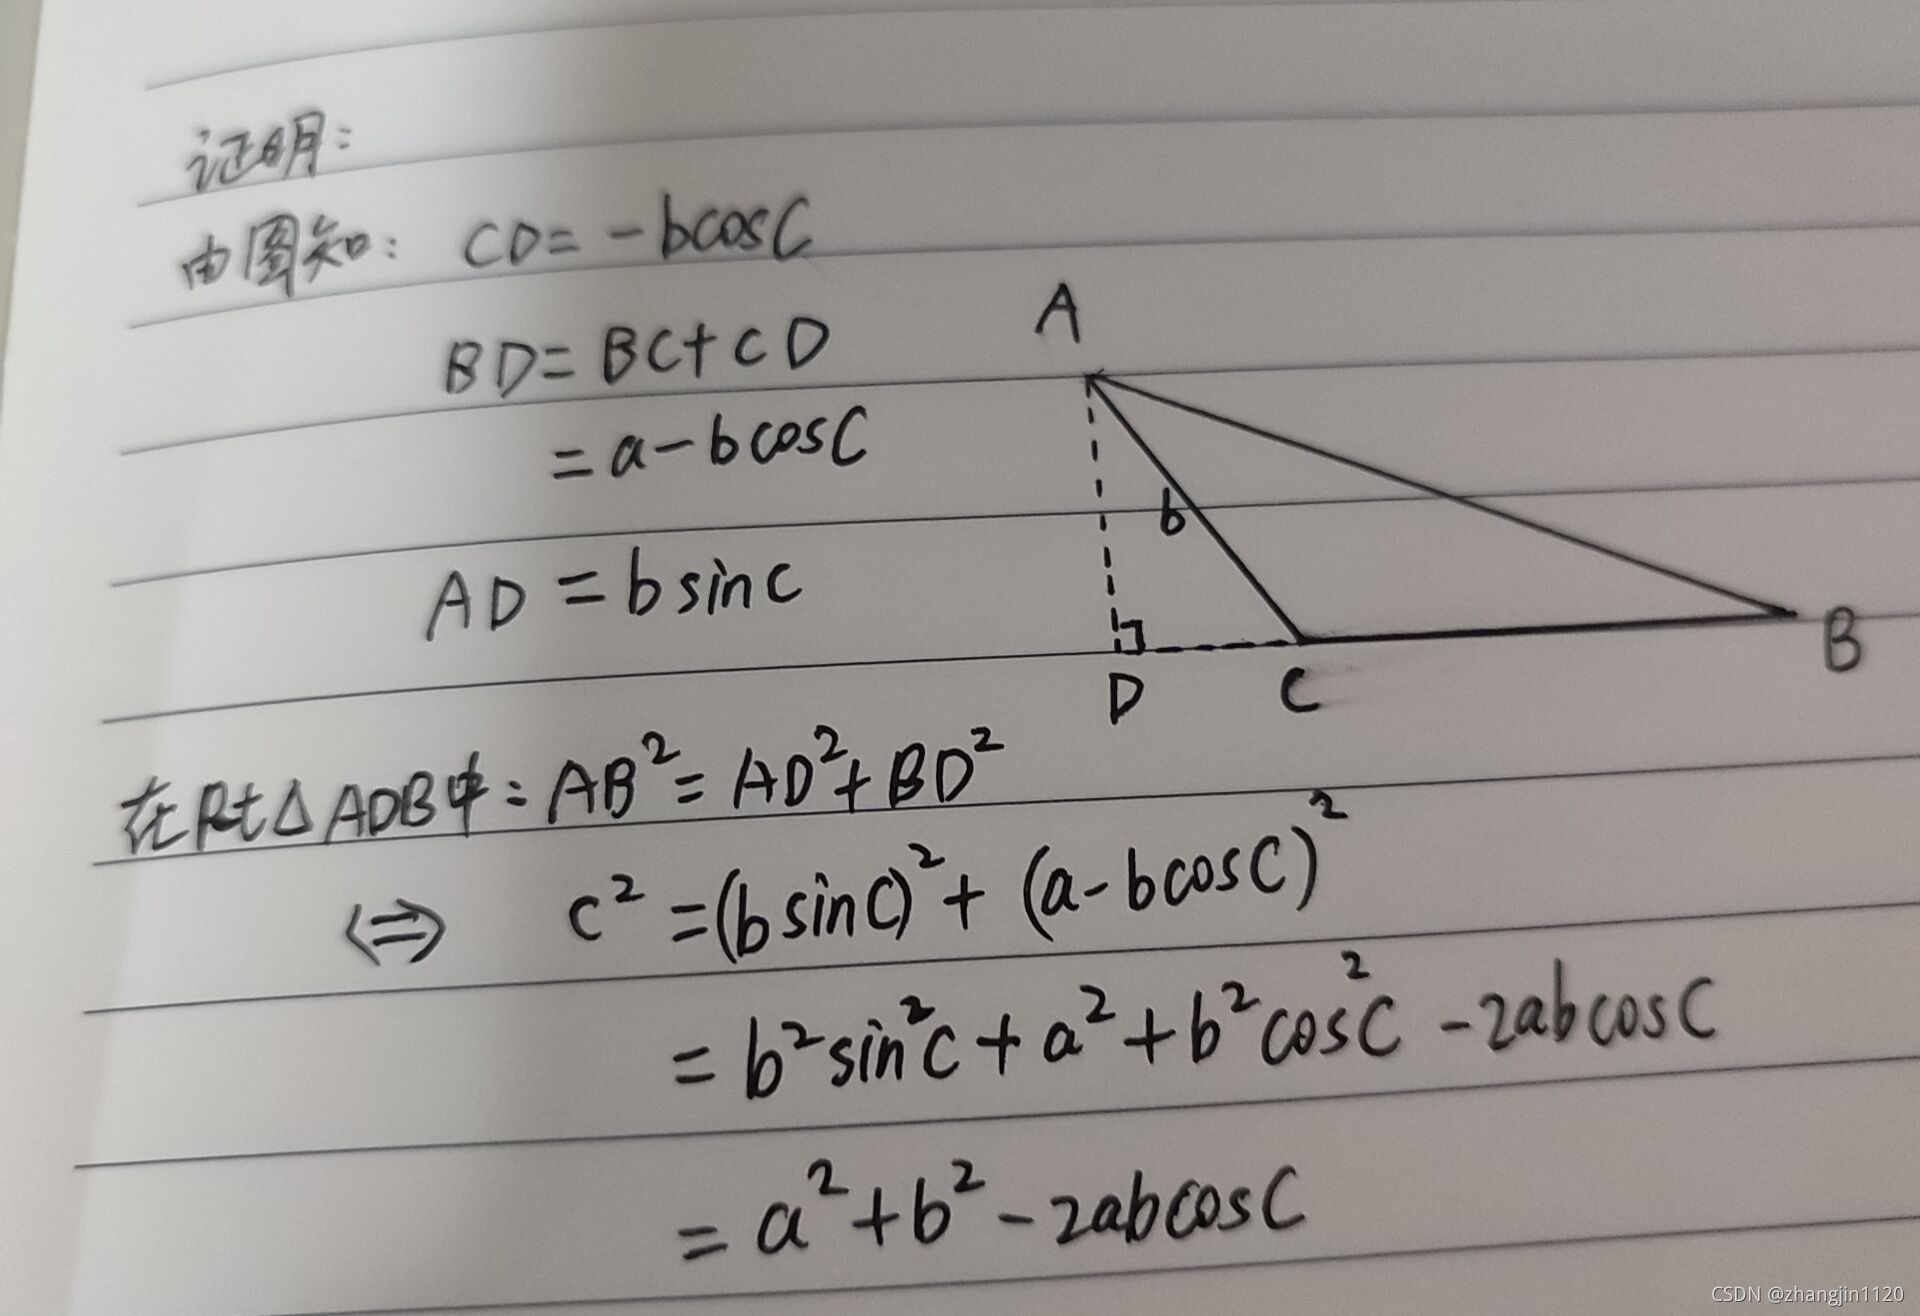 证明:
由图知: CD = -bcosC
BD = BC + CD
= a - bcosC
AD = bsinC
A
b
D
C
B
在Rt△ADB中: AB² = AD² + BD²
⇔ c² = (bsinC)² + (a - bcosC)²
= b²sin²C + a² + b²cos²C - 2abcosC
= a² + b² - 2abcosC
CSDN @zhangjin1120